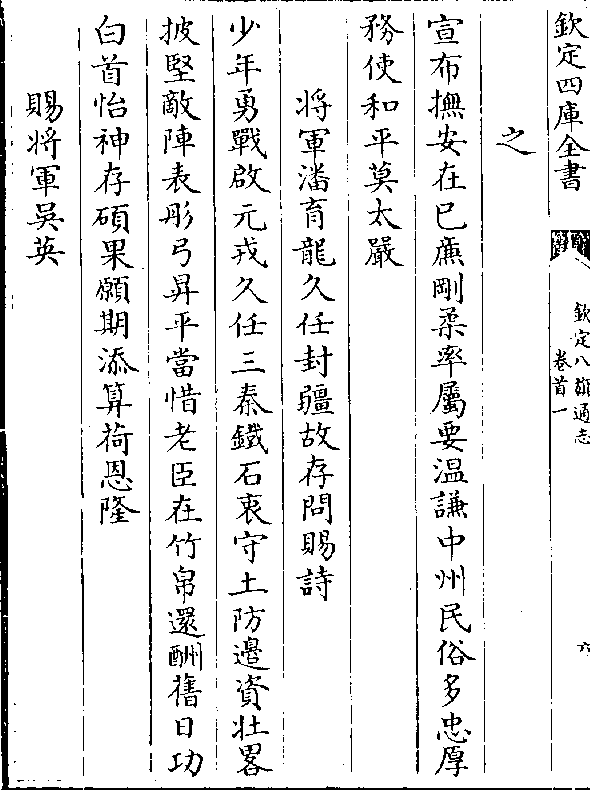 欽定四庫全書
欽定八旗通志
卷首一
六
之
宣布撫安在已廉剛柔率屬要温謙中州民俗多忠厚
務使和平莫太嚴
将軍潘育龍久任封疆故存問賜詩
少年勇戰啟元戎久任三秦鐵石衷守土防邊資壯畧
披堅敵陣表彤弓昇平當惜老臣在竹帛還酬舊日功
白首怡神存碩果願期添算荷恩隆
賜将軍吳英